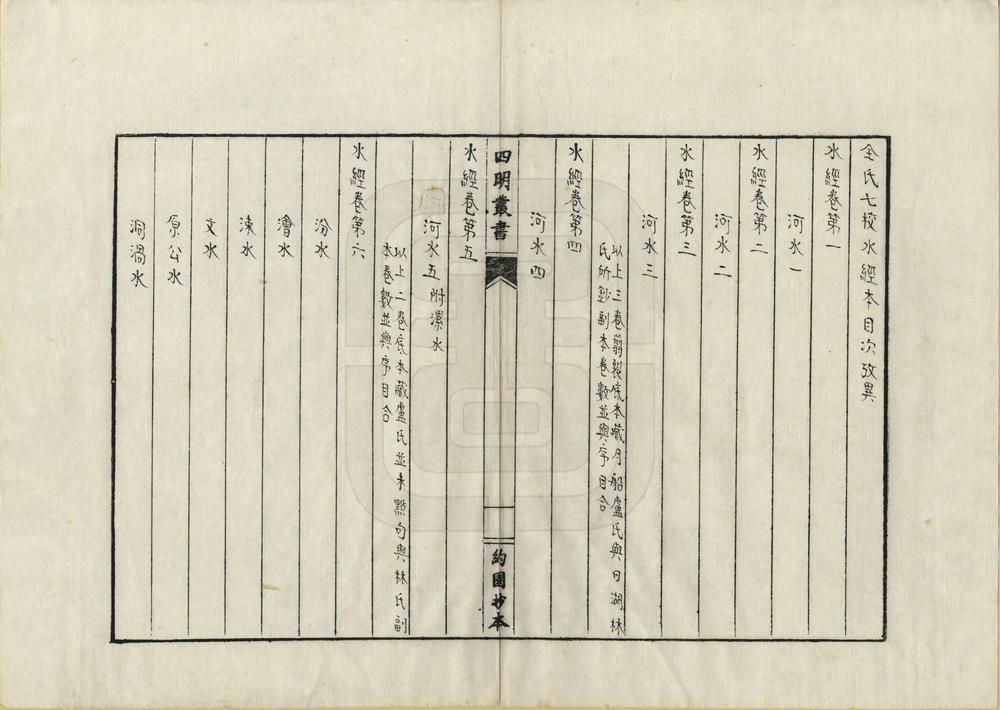 全氏七校水經本目次攷異
水經卷第一
河水一
水經卷第二
河水二
水經卷第三
河水三
以上三卷翦裂底本藏月船盧氏與日湖林
氏所鈔副本卷數並與序目合
水經卷第四
河水四
四明叢書
約園抄本
水經卷第五
河水五附漯水
以上二卷底本藏盧氏並未點句與林氏副
本卷數並與序目合
水經卷第六
汾水
澮水
涑水
文水
原公水
洞渦水